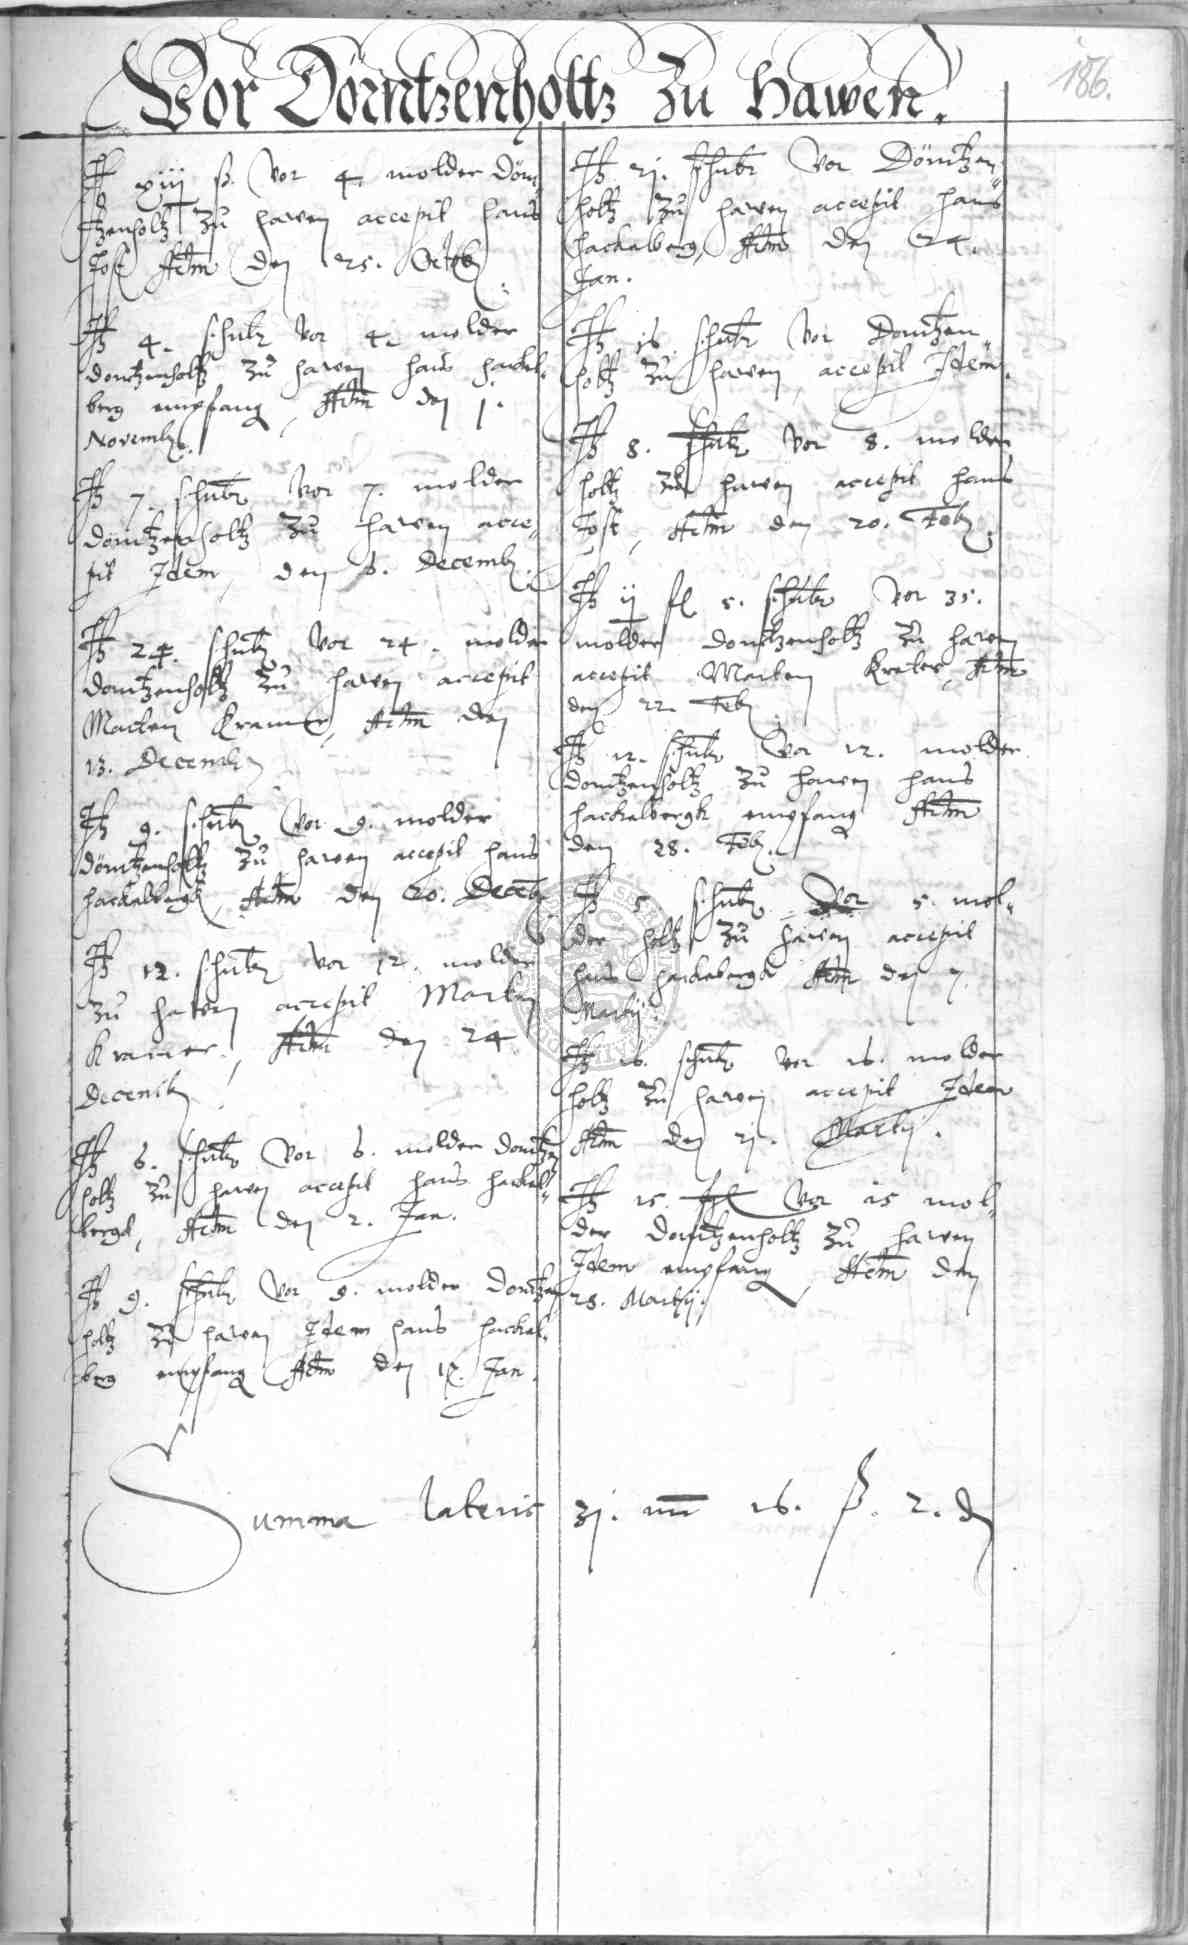 Vor Dörntzenholtz Zu Hawen.
186.
It xiij ß. Vor 4. molder Dörn„
tzenholtz Zu hawen accepit hans
Jost Actm den 25. Octob.
It 4. schnbr Vor 4. molder
dorntzenholtz Zu hawen hans hackel„
berg empfang, Actm den 1.
Novemb.
It 7. schnbr Vor 7. molder
dörntzenholtz Zu hawen acce„
pit Idem, den 6. Decemb.
It 24. schnbr Vor 24. molder
dorntzenholtz Zu hawen accepit
Marten Kramer, Actm den
13. Decemb.
It 9. schnbr Vor 9. molder
dörntzenholtz Zu hawen accepit hans
hackelbergk, Actm den 20. Decēb.
It 12. schnbr Vor 12. molder
Zu hawen accepit Marten
Kramer, Actm den 24.
Decemb.
It 6. schnbr Vor 6. molder dorntzen
holtz Zu hawen accepit hans hackel„
bergk, Actm den 2. Jan.
It 9. schnbr Vor 9. molder dorntzen
holtz Zu hawen Idem hans hackel„
berg empfang Actm den Jan.
It 21. schnbr Vor Dörntzen„
holtz Zu hawen accepit hans
hackelberg, Actm den 24.
Jan.
It 16 schnbr Vor Dorntzen„
holtz Zu hawen accepit Idem.
It 8. schnbr Vor 8. molder
holtz Zu hawen accepit hans
Jost, Actm den 20. Feb.
It ij fl 5. schnbr Vor 35.
molder dorntzenholtz Zu hawen
accepit Marten Actm
den 22. Feb.
It 12. schnbr Vor 12. molder
dorntzenholtz Zu hawen hans
hackelbergk empfang Actm
den 28. Feb.
It 5 schnbr Vor 5. mol„
der holtz Zu hawen accepit
hans hackelbergk Actm den 7.
Martij.
It 16. schnbr Vor 16. molder
holtz Zu hawen accepit Idem
Actm den 21. Martij.
It 15. Vor 15 mol„
der dorntzenholtz Zu hawen
Idem empfang, Actm den
28. Martij.
Summa lateris 31. 16. ß. 2. d